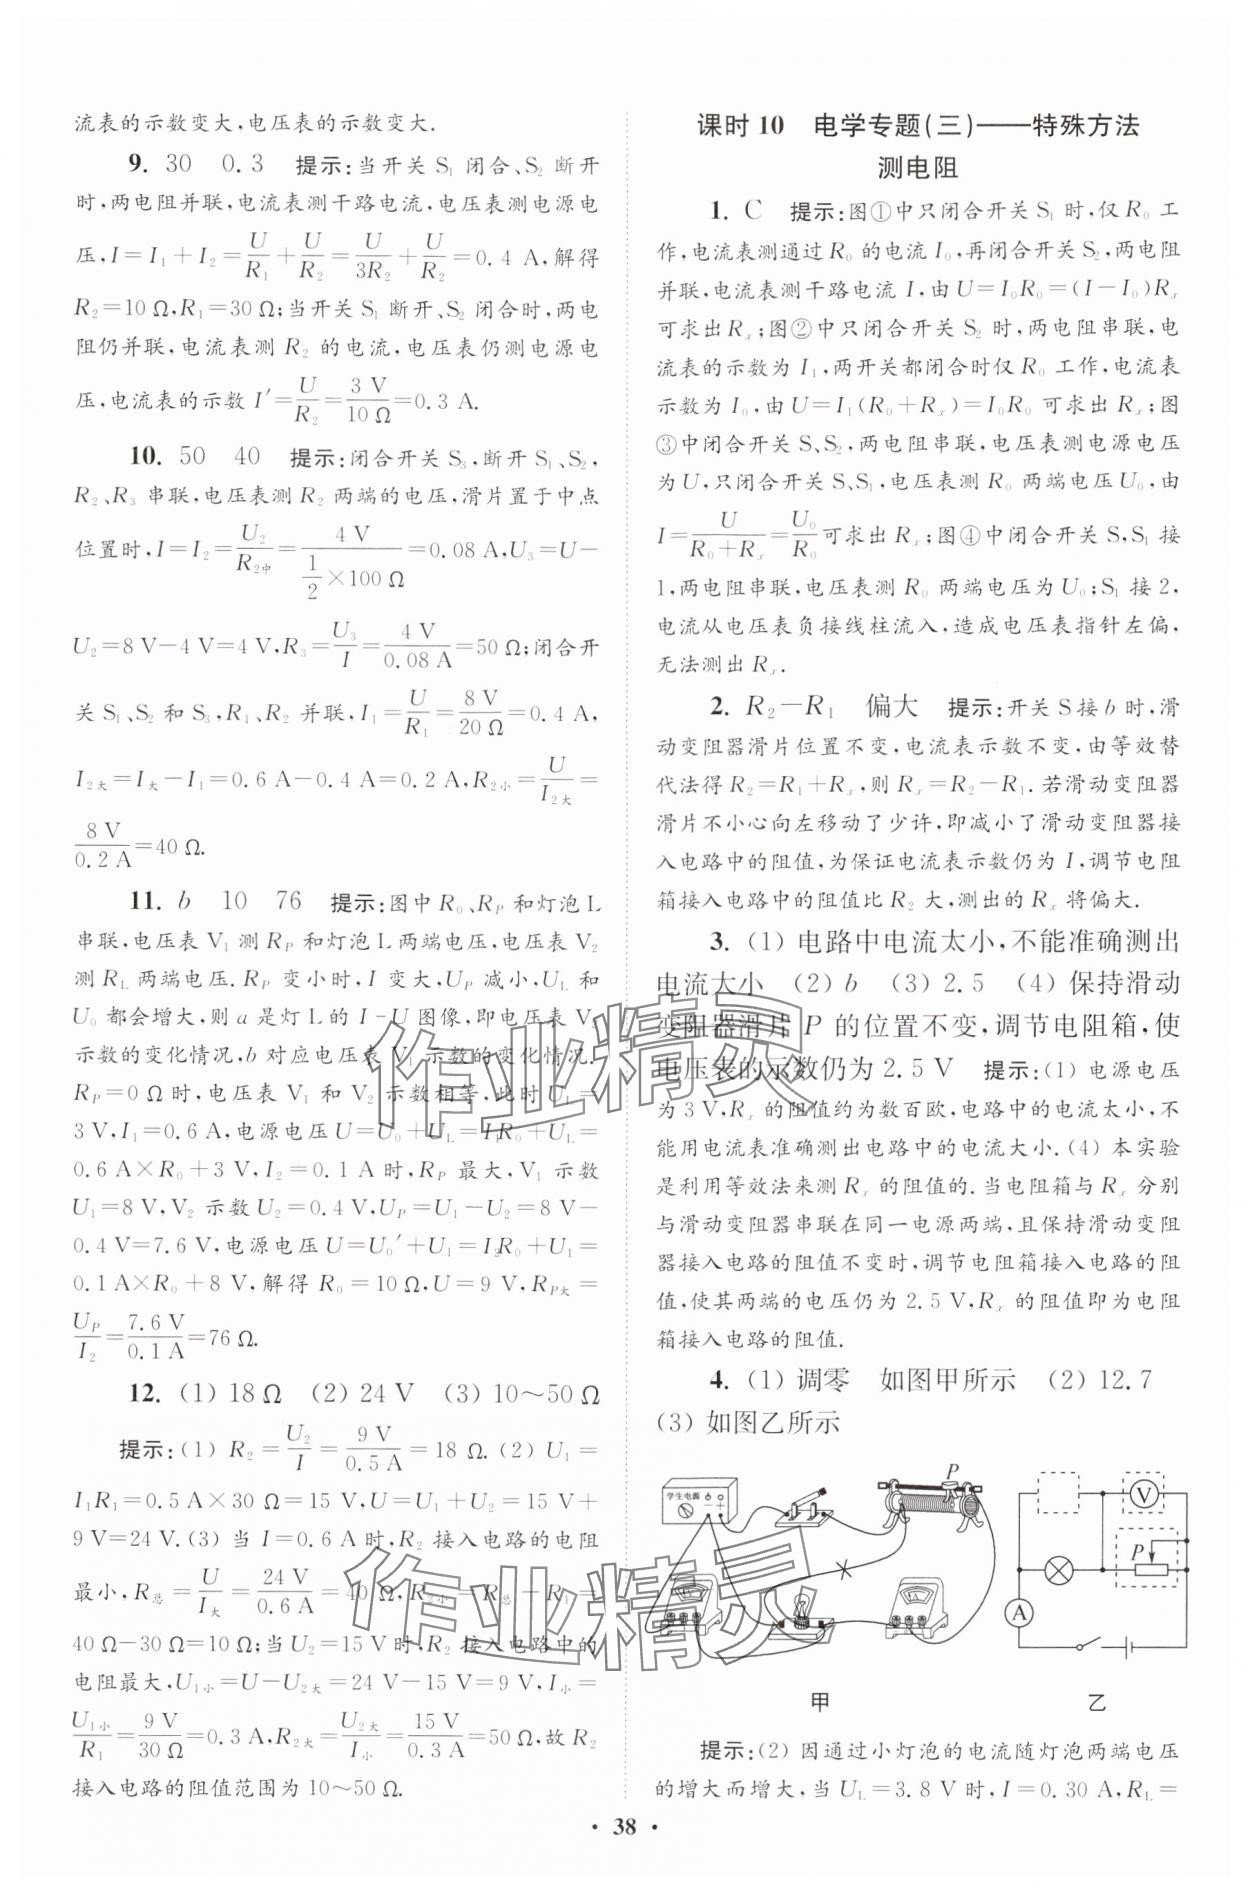 流表的示数变大,电压表的示数变大.
9. 30 0.3 提示:当开关 S₁ 闭合、S₂ 断开
时,两电阻并联,电流表测干路电流,电压表测电源电
压,I=I₁+I₂=U/R₁+U/R₂=U/3R₂+U/R₂=0.4 A,解得
R₂=10 Ω,R₁=30 Ω;当开关 S₁ 断开、S₂ 闭合时,两电
阻仍并联,电流表测 R₂ 的电流,电压表仍测电源电
压,电流表的示数 I′=U/R₂=3 V/10 Ω=0.3 A.
10. 50 40 提示:闭合开关 S₃,断开 S₁、S₂,
R₂、R₃ 串联,电压表测 R₂ 两端的电压,滑片置于中点
位置时,I=I₂=U₂/R₂中=4 V/(1/2×100 Ω)=0.08 A,U₃=U-
U₂=8 V-4 V=4 V,R₃=U₃/I=4 V/0.08 A=50 Ω;闭合开
关 S₁、S₂ 和 S₃,R₁、R₂ 并联,I₁=U/R₁=8 V/20 Ω=0.4 A,
I₂大=I大-I₁=0.6 A-0.4 A=0.2 A,R₂小=U/I₂大=
8 V/0.2 A=40 Ω.
11. b 10 76 提示:图中 R₀、R_P 和灯泡 L
串联,电压表 V₁ 测 R_P 和灯泡 L 两端电压,电压表 V₂
测 R_L 两端电压.R_P 变小时,I 变大,U_P 减小,U_L 和
U₀ 都会增大,则 a 是灯 L 的 I-U 图像,即电压表 V₂
示数的变化情况,b 对应电压表 V₁ 示数的变化情况.
R_P=0 Ω 时,电压表 V₁ 和 V₂ 示数相等,此时 U_L=
3 V,I₁=0.6 A,电源电压 U=U₀+U_L=I₁R₀+U_L=
0.6 A×R₀+3 V,I₂=0.1 A 时,R_P 最大,V₁ 示数
U₁=8 V,V₂ 示数 U₂=0.4 V,U_P=U₁-U₂=8 V-
0.4 V=7.6 V,电源电压 U=U₀′+U₁=I₂R₀+U₁=
0.1 A×R₀+8 V,解得 R₀=10 Ω,U=9 V,R_P大=
U_P/I₂=7.6 V/0.1 A=76 Ω.
12. (1) 18 Ω (2) 24 V (3) 10～50 Ω
提示:(1) R₂=U₂/I=9 V/0.5 A=18 Ω.(2) U₁=
I₁R₁=0.5 A×30 Ω=15 V,U=U₁+U₂=15 V+
9 V=24 V.(3) 当 I=0.6 A 时,R₂ 接入电路的电阻
最小,R总=U/I大=24 V/0.6 A=40 Ω,R₂小=R总-R₁=
40 Ω-30 Ω=10 Ω;当 U₂=15 V 时,R₂ 接入电路中的
电阻最大,U₁小=U-U₂大=24 V-15 V=9 V,I小=
U₁小/R₁=9 V/30 Ω=0.3 A,R₂大=U₂大/I小=15 V/0.3 A=50 Ω,故 R₂
接入电路的阻值范围为 10～50 Ω.
课时 10 电学专题(三)——特殊方法
测电阻
1. C 提示:图①中只闭合开关 S₁ 时,仅 R₀ 工
作,电流表测通过 R₀ 的电流 I₀,再闭合开关 S₂,两电阻
并联,电流表测干路电流 I,由 U=I₀R₀=(I-I₀)Rₓ
可求出 Rₓ;图②中只闭合开关 S₂ 时,两电阻串联,电
流表的示数为 I₁,两开关都闭合时仅 R₀ 工作,电流表
示数为 I₀,由 U=I₁(R₀+Rₓ)=I₀R₀ 可求出 Rₓ;图
③中闭合开关 S、S₂,两电阻串联,电压表测电源电压
为 U,只闭合开关 S、S₁,电压表测 R₀ 两端电压 U₀,由
I=U/(R₀+Rₓ)=U₀/R₀可求出 Rₓ;图④中闭合开关 S,S₁ 接
1,两电阻串联,电压表测 R₀ 两端电压为 U₀;S₁ 接 2,
电流从电压表负接线柱流入,造成电压表指针左偏,
无法测出 Rₓ.
2. R₂-R₁ 偏大 提示:开关 S 接 b 时,滑
动变阻器滑片位置不变,电流表示数不变,由等效替
代法得 R₂=R₁+Rₓ,则 Rₓ=R₂-R₁.若滑动变阻器
滑片不小心向左移动了少许,即减小了滑动变阻器接
入电路中的阻值,为保证电流表示数仍为 I,调节电阻
箱接入电路中的阻值比 R₂ 大,测出的 Rₓ 将偏大.
3. (1) 电路中电流太小,不能准确测出
电流大小 (2) b (3) 2.5 (4) 保持滑动
变阻器滑片 P 的位置不变,调节电阻箱,使
电压表的示数仍为 2.5 V 提示:(1) 电源电压
为 3 V,Rₓ 的阻值约为数百欧,电路中的电流太小,不
能用电流表准确测出电路中的电流大小.(4) 本实验
是利用等效法来测 Rₓ 的阻值的.当电阻箱与 Rₓ 分别
与滑动变阻器串联在同一电源两端,且保持滑动变阻
器接入电路的阻值不变时,调节电阻箱接入电路的阻
值,使其两端的电压仍为 2.5 V,Rₓ 的阻值即为电阻
箱接入电路的阻值.
4. (1) 调零 如图甲所示 (2) 12.7
(3) 如图乙所示
学生电源
P
甲
V
P
A
乙
提示:(2) 因通过小灯泡的电流随灯泡两端电压
的增大而增大,当 U_L=3.8 V 时,I=0.30 A,R_L=
· 38 ·
作业精灵
作业精灵